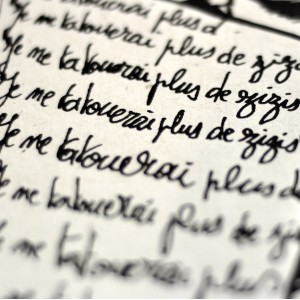 tatouerai plus d
Je me tatouerai plus de zizis
Je me tatouerai plus de zizis
Je me tatouerai plus de zizis
Je me tatouerai plus d
Je me tatouerai plus de zi
Je me tatouerai plus